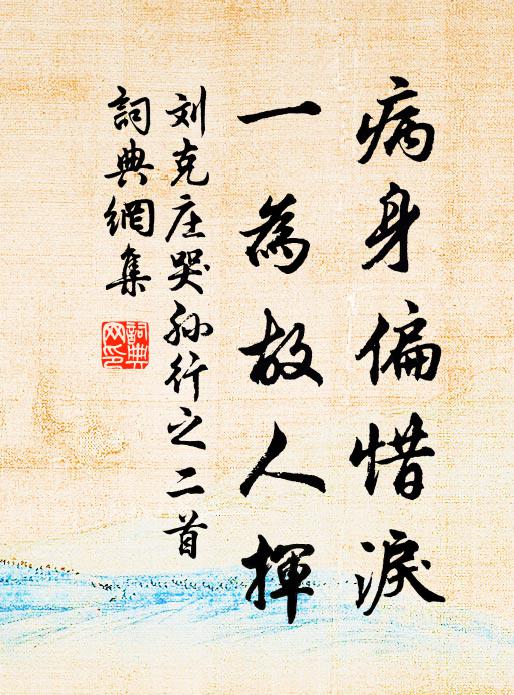 病身偏惜淚
一為故人揮
刘克庄哭孙行之二首
詞典網集
詞典網印